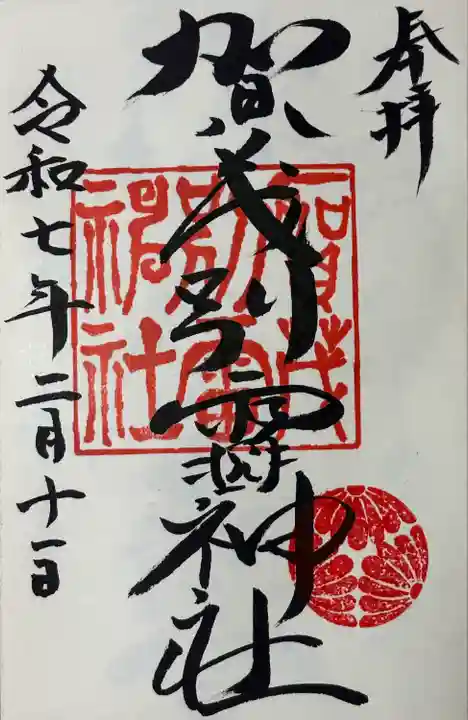 奉拝
賀茂別雷神社
令和七年二月十一日
賀茂別雷神社